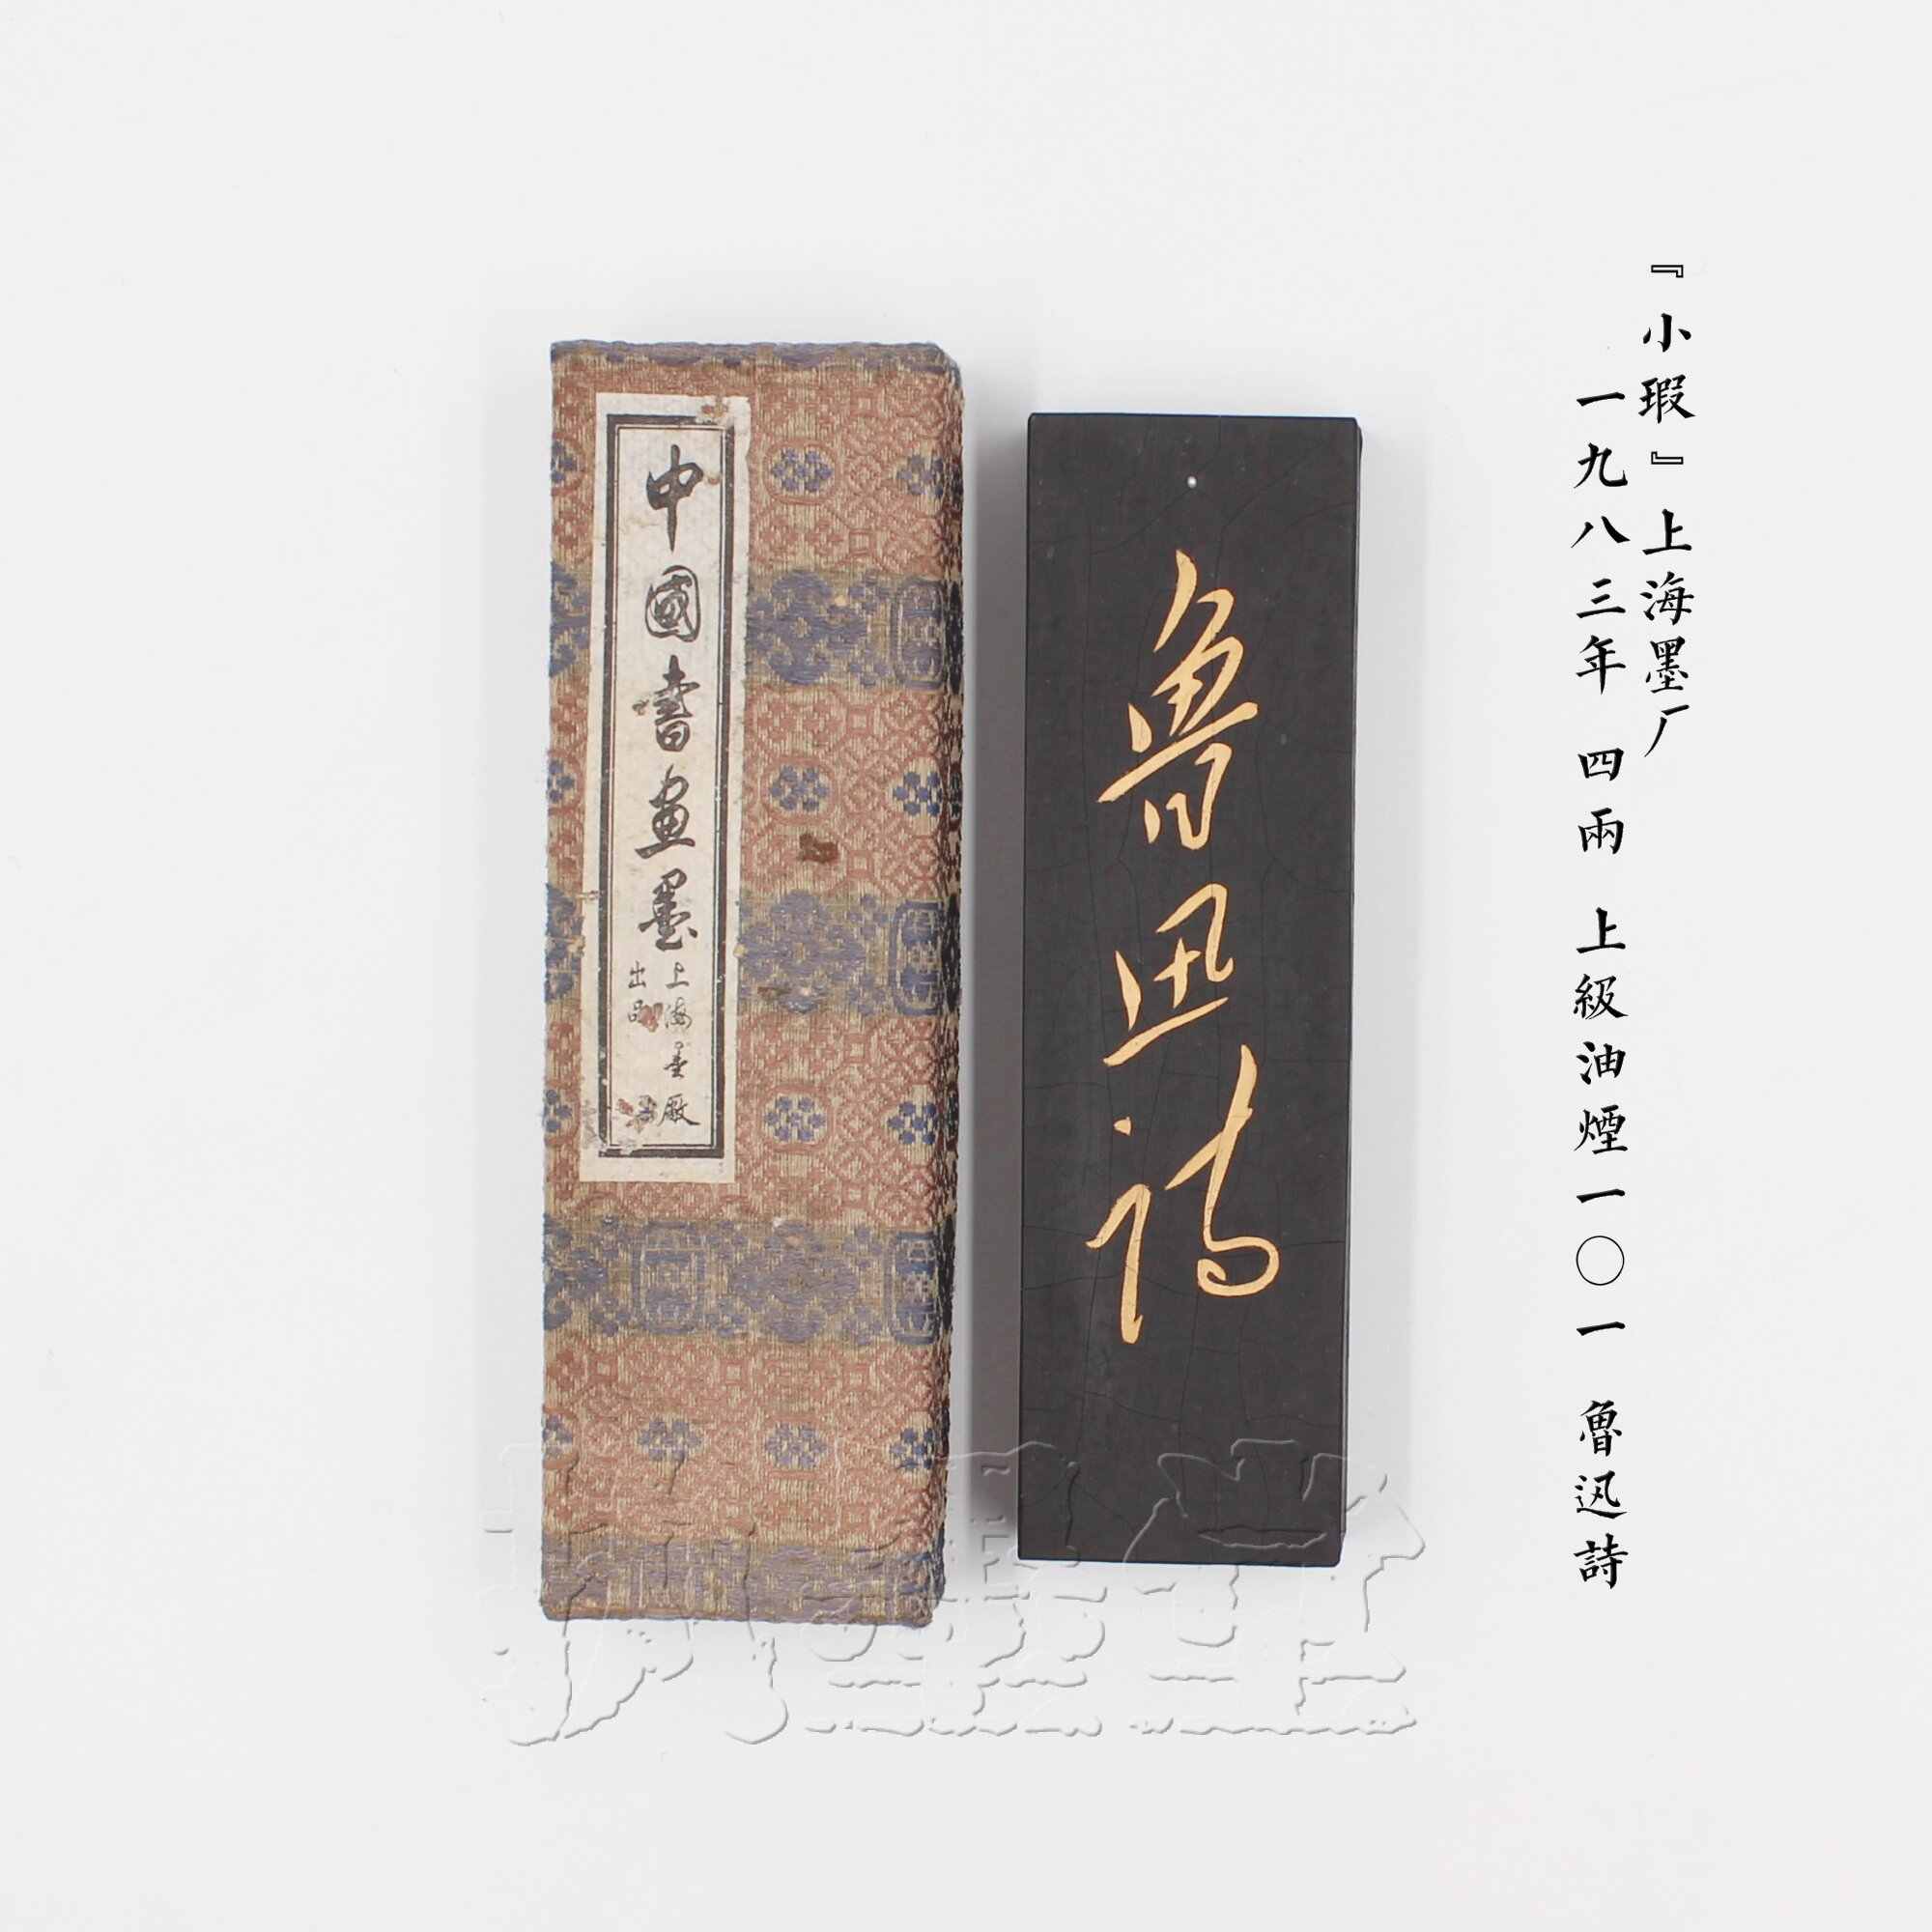 『小瑕』上海墨厂
一九八三年 四兩 上級油煙一〇一 魯迅詩
魯迅詩
中國書畫墨
上海墨厰
出品